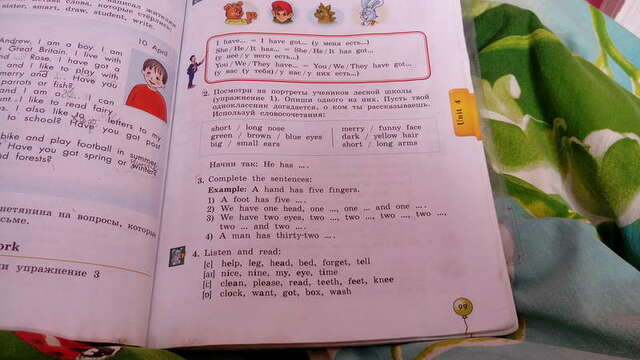 sister, smart, draw, student, write.
10 April
Andrew. I am a boy. I am
Great Britain. I live with
Rose. I have got
and I like to play with
merry and Have you
parrots or fish?
and a I can
I like to read fairy
I also like letters to my
to school? Have you got
bike and play football in summer.
Have you got spring or winter?
and forests?
на вопросы, которые
ork
упражнение 3
I have... = I have got... (у меня есть...)
She/He/It has... = She/He/It has got...
(у неё/у него есть...)
You/We/They have... = You/We/They have got...
(у вас (у тебя)/у нас/у них есть...)
2. Посмотри на портреты учеников лесной школы
(упражнение 1). Опиши одного из них. Пусть твой
одноклассник догадается, о ком ты рассказываешь.
Используй словосочетания:
short / long nose
green / brown / blue eyes
big / small ears
merry / funny face
dark / yellow hair
short / long arms
Начни так: He has ... .
3. Complete the sentences:
Example: A hand has five fingers.
1) A foot has five ... .
2) We have one head, one ..., one ... and one ... .
3) We have two eyes, two ..., two ..., two ..., two ...,
two ... and two ... .
4) A man has thirty-two ... .
4. Listen and read:
[e] help, leg, head, bed, forget, tell
[aɪ] nice, nine, my, eye, time
[i:] clean, please, read, teeth, feet, knee
[ɒ] clock, want, got, box, wash
Unit 4
99